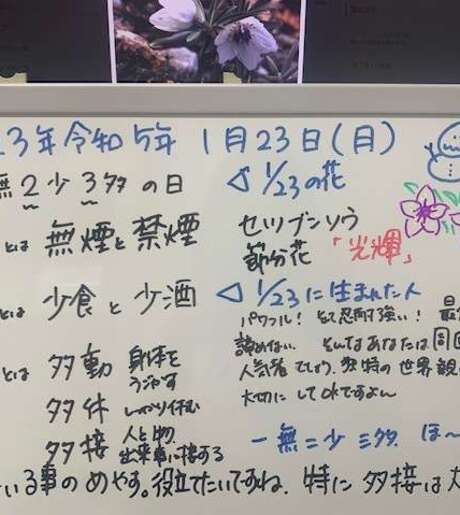 3年令和5年 1月23日(月)
無2少3多の日
とは 無煙と禁煙
とは 少食と少酒
とは 多動 身体をうごかす
多休 しっかり休む
多接 人と物、出来事に接する
◁ 1/23の花
セツブンソウ
節分花 「光輝」
◁ 1/23に生まれた人
パワフル! とても忍耐強い! 最
諦めない そんなあなたは周囲
人気者でしょう。独特の世界観
大切にしてOKですよん
一無二少三多 ほ〜
いる事のめやす。役立てたいですね。特に多接は大